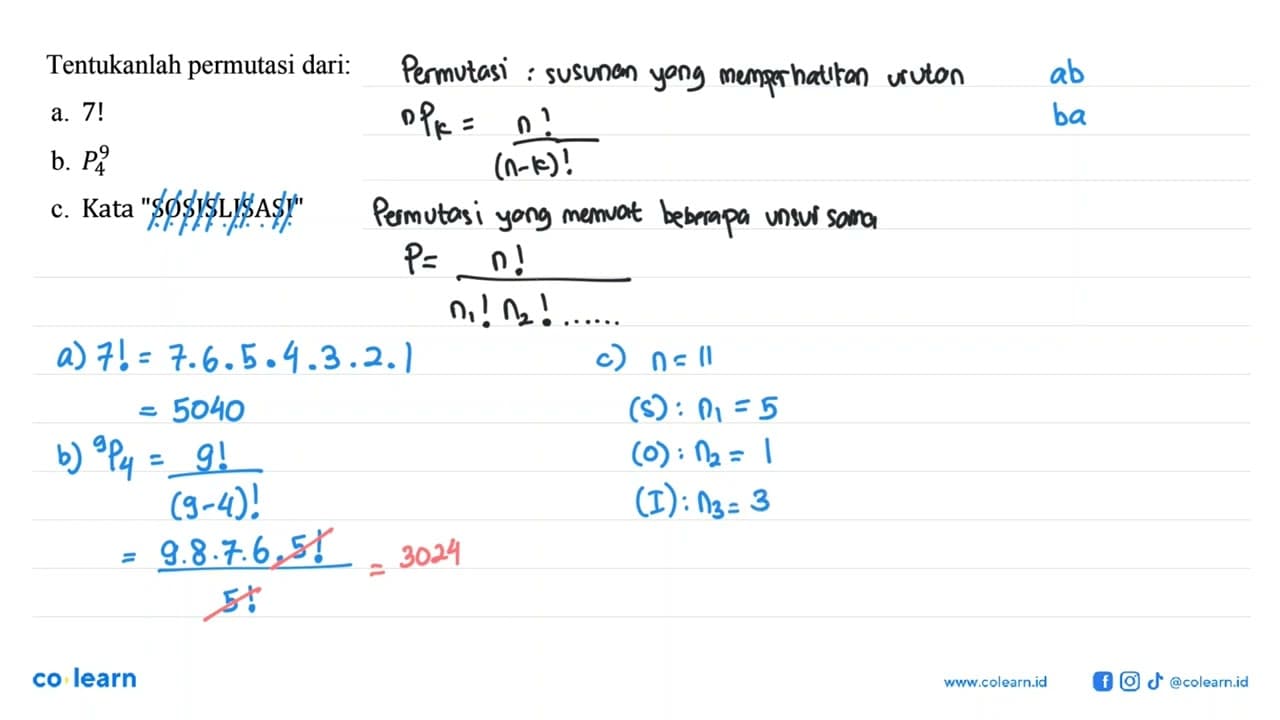 Tentukanlah permutasi dari:
a. 7!
b. P₄⁹
c. Kata "SOSISLISASI"
Permutasi : susunan yang memperhatikan urutan
ab
ba
nPk = n!
(n-k)!
Permutasi yang memuat beberapa unsur sama
P= n!
n₁! n₂! ......
a) 7! = 7.6.5.4.3.2.1
= 5040
b) ⁹P₄ = 9!
(9-4)!
= 9.8.7.6.5!
5!
= 3024
c) n = 11
(S) : n₁ = 5
(O) : n₂ = 1
(I) : n₃ = 3
co learn
www.colearn.id
@colearn.id